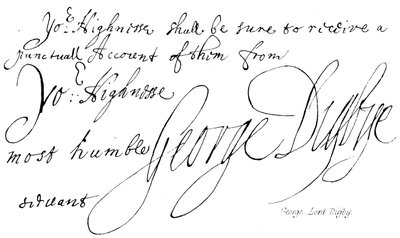 Yor: Highnesse shall be sure to receive a
punctuall Account of them from
Yor: Highnesse
most humble
servant
George Digbye
George, Lord Digby.